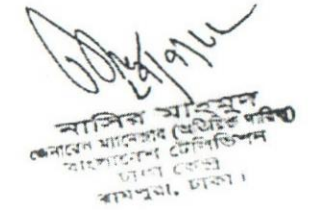 ২৯/৭/৮৮
নাসির মাহমুদ
জেনারেল ম্যানেজার (অতিরিক্ত দায়িত্ব)
বাংলাদেশ টেলিভিশন
ঢাকা কেন্দ্র
রামপুরা, ঢাকা।